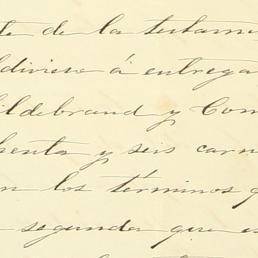 te de la testame
ldivieso á entrega
ildebrand y Com
henta y seis carn
n los términos q
segunda que es